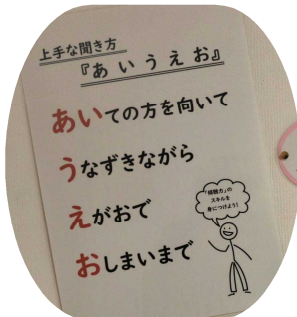 上手な聞き方
『あいうえお』
あいての方を向いて
うなずきながら
えがおで
おしまいまで
「傾聴力」の
スキルを
身につけよう！